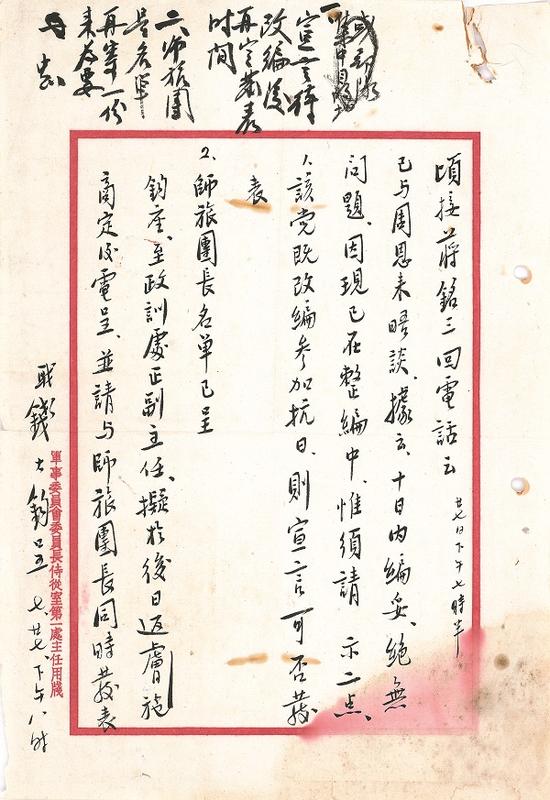 宣言待
改編後
再定發表
時間
二、師旅團
長名單
再寄一份
來為要
頃接蔣銘三回電話云 廿七日下午七時半
已与周恩来晤談、據云、十日內編妥、絕無
問題、因現已在整編中、惟須請 示二点、
1、該党既改編參加抗日、則宣言可否發
表
2、師旅團長名单已呈
鈞座、至政訓處正副主任、擬於後日返膚施
商定後電呈、並請与師旅團長同時發表
職錢大鈞呈 七、廿七、下午八时
軍事委員會委員長侍從室第一處主任用牋